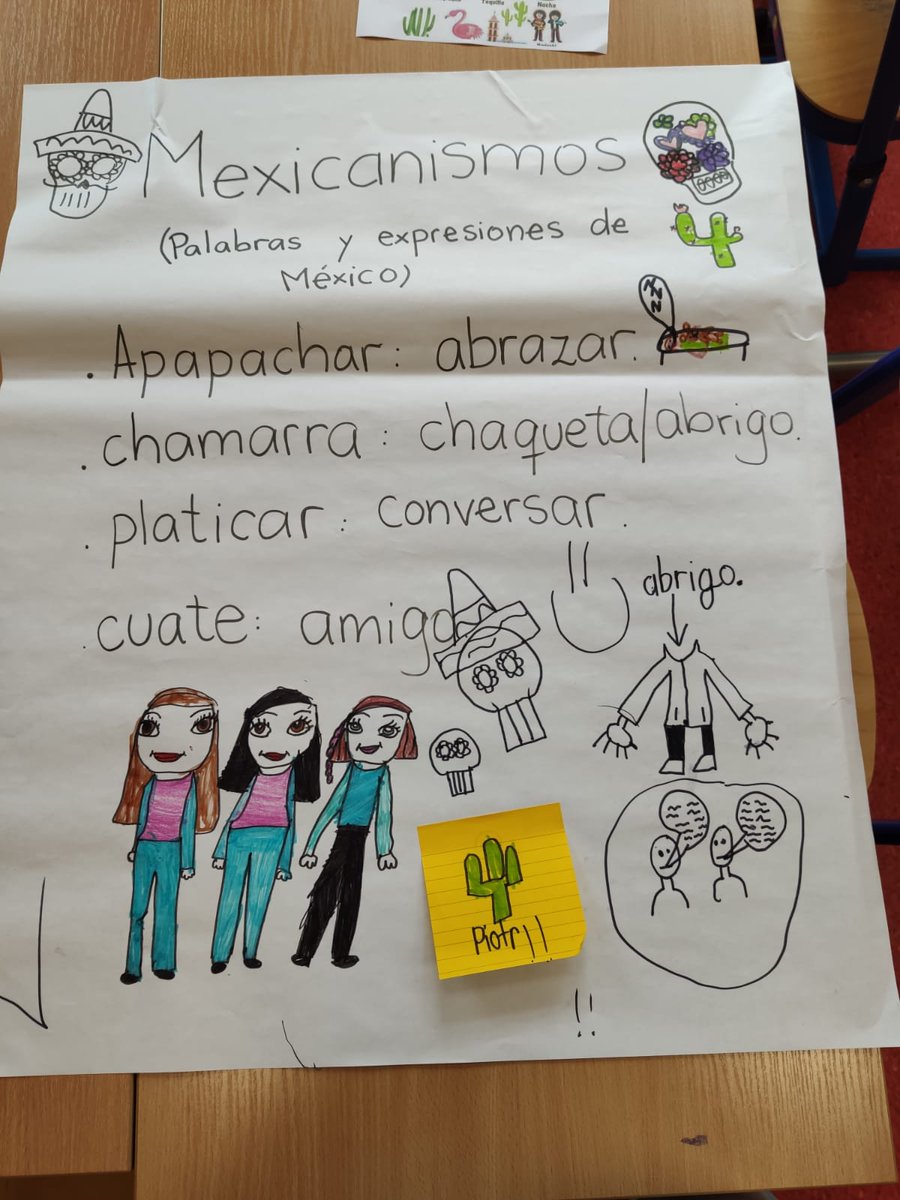 Tequila
Nacho
Mariachi
Mexicanismos
(Palabras y expresiones de
México)
. Apapachar: abrazar.
zzz
. chamarra: chaqueta/abrigo.
. platicar: conversar.
. cuate: amigo.
abrigo.
Piotr!!
!!